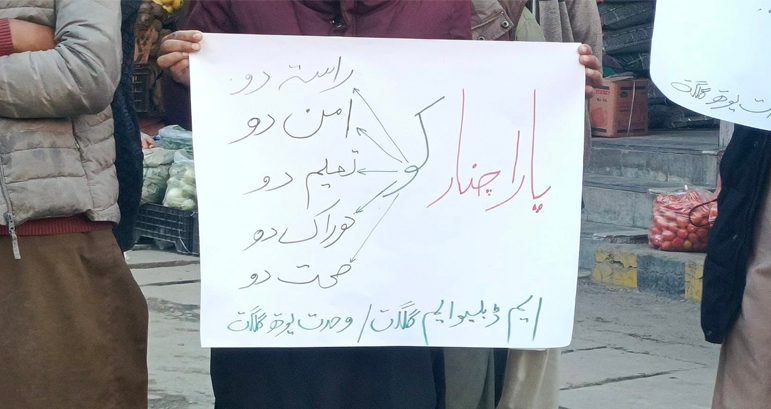 پارا چنار کو
راستہ دو
امن دو
تعلیم دو
خوراک دو
صحت دو
ایم ڈبلیو ایم گلگت / وحدت یوتھ گلگت
یوتھ گلگت